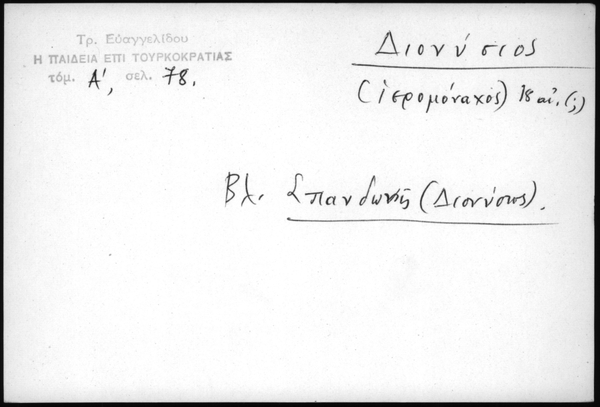 Τρ. Εὐαγγελίδου
Η ΠΑΙΔΕΙΑ ΕΠΙ ΤΟΥΡΚΟΚΡΑΤΙΑΣ
τόμ. Α', σελ. 78.
Διονύσιος
(ἱερομόναχος) 18 αἰ. (;)
Βλ. Σπανδωνῆς (Διονύσιος).